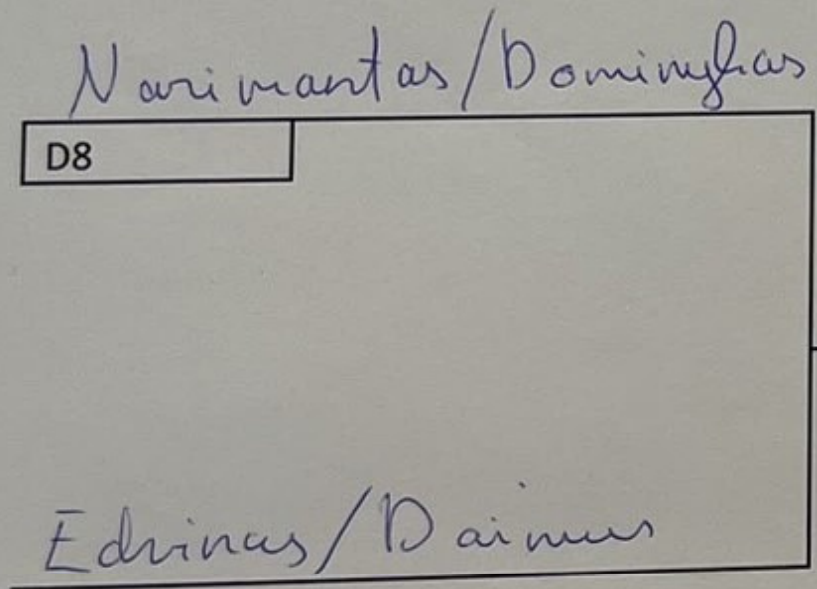 Narimantas/Dominykas
D8
Edvinas/Dainius